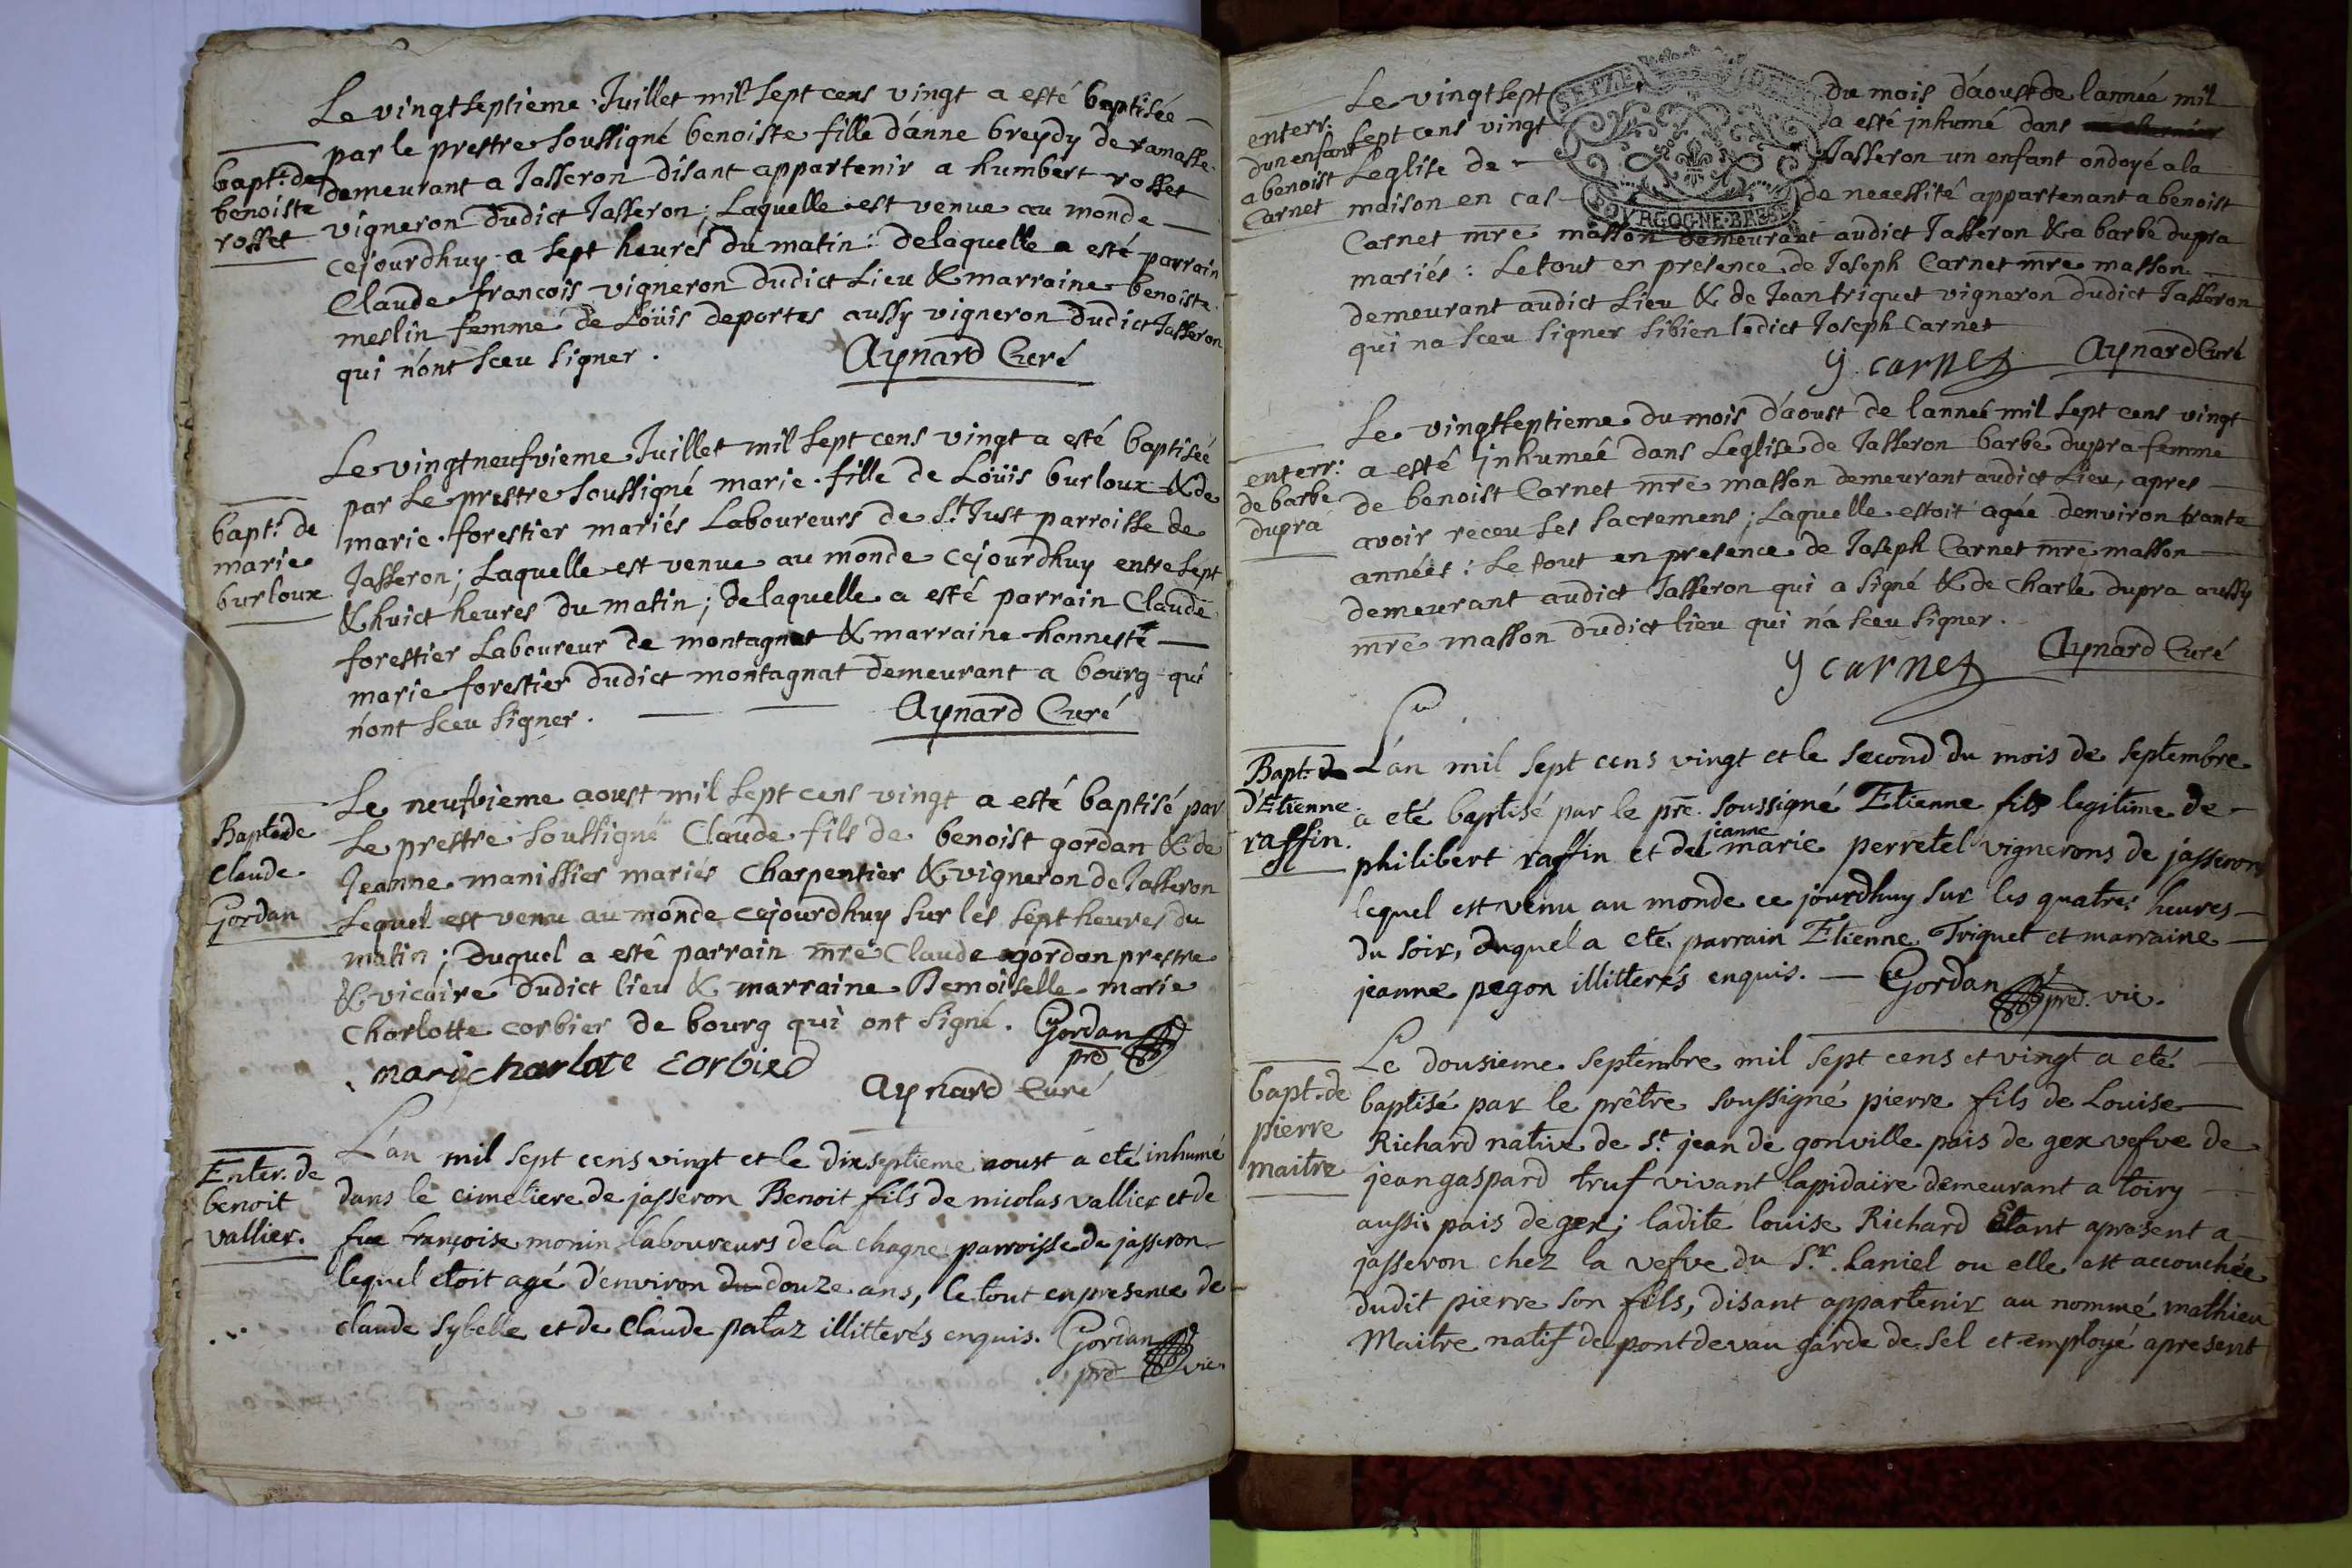 Le vingtseptieme Juillet mil sept cens vingt a esté baptisée
par le prestre soussigné benoiste fille d'anne breydy de ramasse
bapt: de
benoiste
rosset
demeurant a Jasseron disant appartenir a humbert rosset
vigneron dudict Jasseron; Laquelle est venue au monde
cejourdhuy a sept heures du matin: delaquelle a esté parrain
Claude francois vigneron dudict Lieu & marraine benoiste
meslin femme de Loüis deportes aussy vigneron dudict Jasseron
qui n'ont sceu signer.
Aynard Curé
Le vingtneufvieme Juillet mil sept cens vingt a esté baptisée
par Le prestre soussigné marie fille de Loüis burloux & de
bapt: de
marie
burloux
marie forestier mariés Laboureurs de St Just parroisse de
Jasseron; Laquelle est venue au monde cejourdhuy entre sept
& huict heures du matin; delaquelle a esté parrain Claude
forestier Laboureur de montagnat & marraine honneste
marie forestier dudict montagnat demeurant a bourg qui
n'ont sceu signer.
Aynard Curé
Le neufvieme aoust mil sept cens vingt a esté baptisé par
Bapt. de
Claude
Gordan
Le prestre soussigné Claude fils de benoist gordan & de
Jeanne manissier mariés Charpentier & vigneron de Jasseron
Lequel est venu au monde cejourdhuy sur les sept heures du
matin; duquel a esté parrain mre Claude gordan prestre
& vicaire dudict lieu & marraine Demoiselle marie
Charlotte corbier de bourg qui ont signé. Gordan
pre
mari charlote corbier
Aynard Curé
L'an mil sept cens vingt et le dixseptieme aoust a eté inhumé
Enter. de
benoit
vallier.
dans le cimetiere de jasseron Benoit fils de nicolas vallier et de
fue françoise monin laboureurs de la chagne parroisse de jasseron
lequel etoit agé d'environ du douze ans, le tout en presence de
claude sybelle et de Claude pataz illitterés enquis. Gordan
pre vic.
Le vingtsept du mois d'aoust de lanneé mil
enterr:
dun enfant
a benoist
Carnet
sept cens vingt a esté inhumé dans
Leglise de Jasseron un enfant ondoyé a la
maison en cas de necessité appartenant a benoist
BOURGOGNE-BRESSE
Carnet mre masson demeurant audict Jasseron & a barbe dupra
mariés: Le tout en presence de Joseph Carnet mre masson
demeurant audict Lieu & de Jean triquet vigneron dudict Jasseron
qui na sceu signer sibien ledict Joseph Carnet
y. carnet Aynard Curé
Le vingtseptieme du mois d'aoust de lanneé mil sept cens vingt
enterr:
de barbe
dupra
a esté inhumeé dans Leglise de Jasseron barbe dupra femme
de benoist Carnet mre masson demeurant audict Lieu, apres
avoir receu ses sacremens; Laquelle estoit agée denviron trante
années: Le tout en presence de Joseph Carnet mre masson
demeurant audict Jasseron qui a signé & de Charle dupra aussy
mre masson dudict lieu qui n'a sceu signer.
y carnet Aynard Curé
Bapt. de
d'Etienne
raffin.
L'an mil sept cens vingt et le second du mois de septembre
a eté baptisé par le pre. soussigné Etienne fils legitime de
philibert raffin et de jeanne marie perretel vignerons de jasseron
lequel est venu au monde ce jourdhuy sur les quatre heures
du soir, duquel a eté parrain Etienne Triquet et marraine
jeanne pegon illitterés enquis. Gordan
pre. vic.
Le dousieme septembre mil sept cens et vingt a eté
bapt. de
pierre
maitre
baptisé par le prêtre soussigné pierre fils de Louise
Richard native de St. jean de gonville païs de gex vefve de
jean gaspard truf vivant lapidaïre demeurant a toiry
aussi païs de gex; ladite louise Richard Etant apresent a
jasseron chez la vefve du Sr. Laniel ou elle est accouchée
dudit pierre son fils, disant appartenir au nommé mathieu
Maitre natif de pontdevau garde de sel et employé apresent